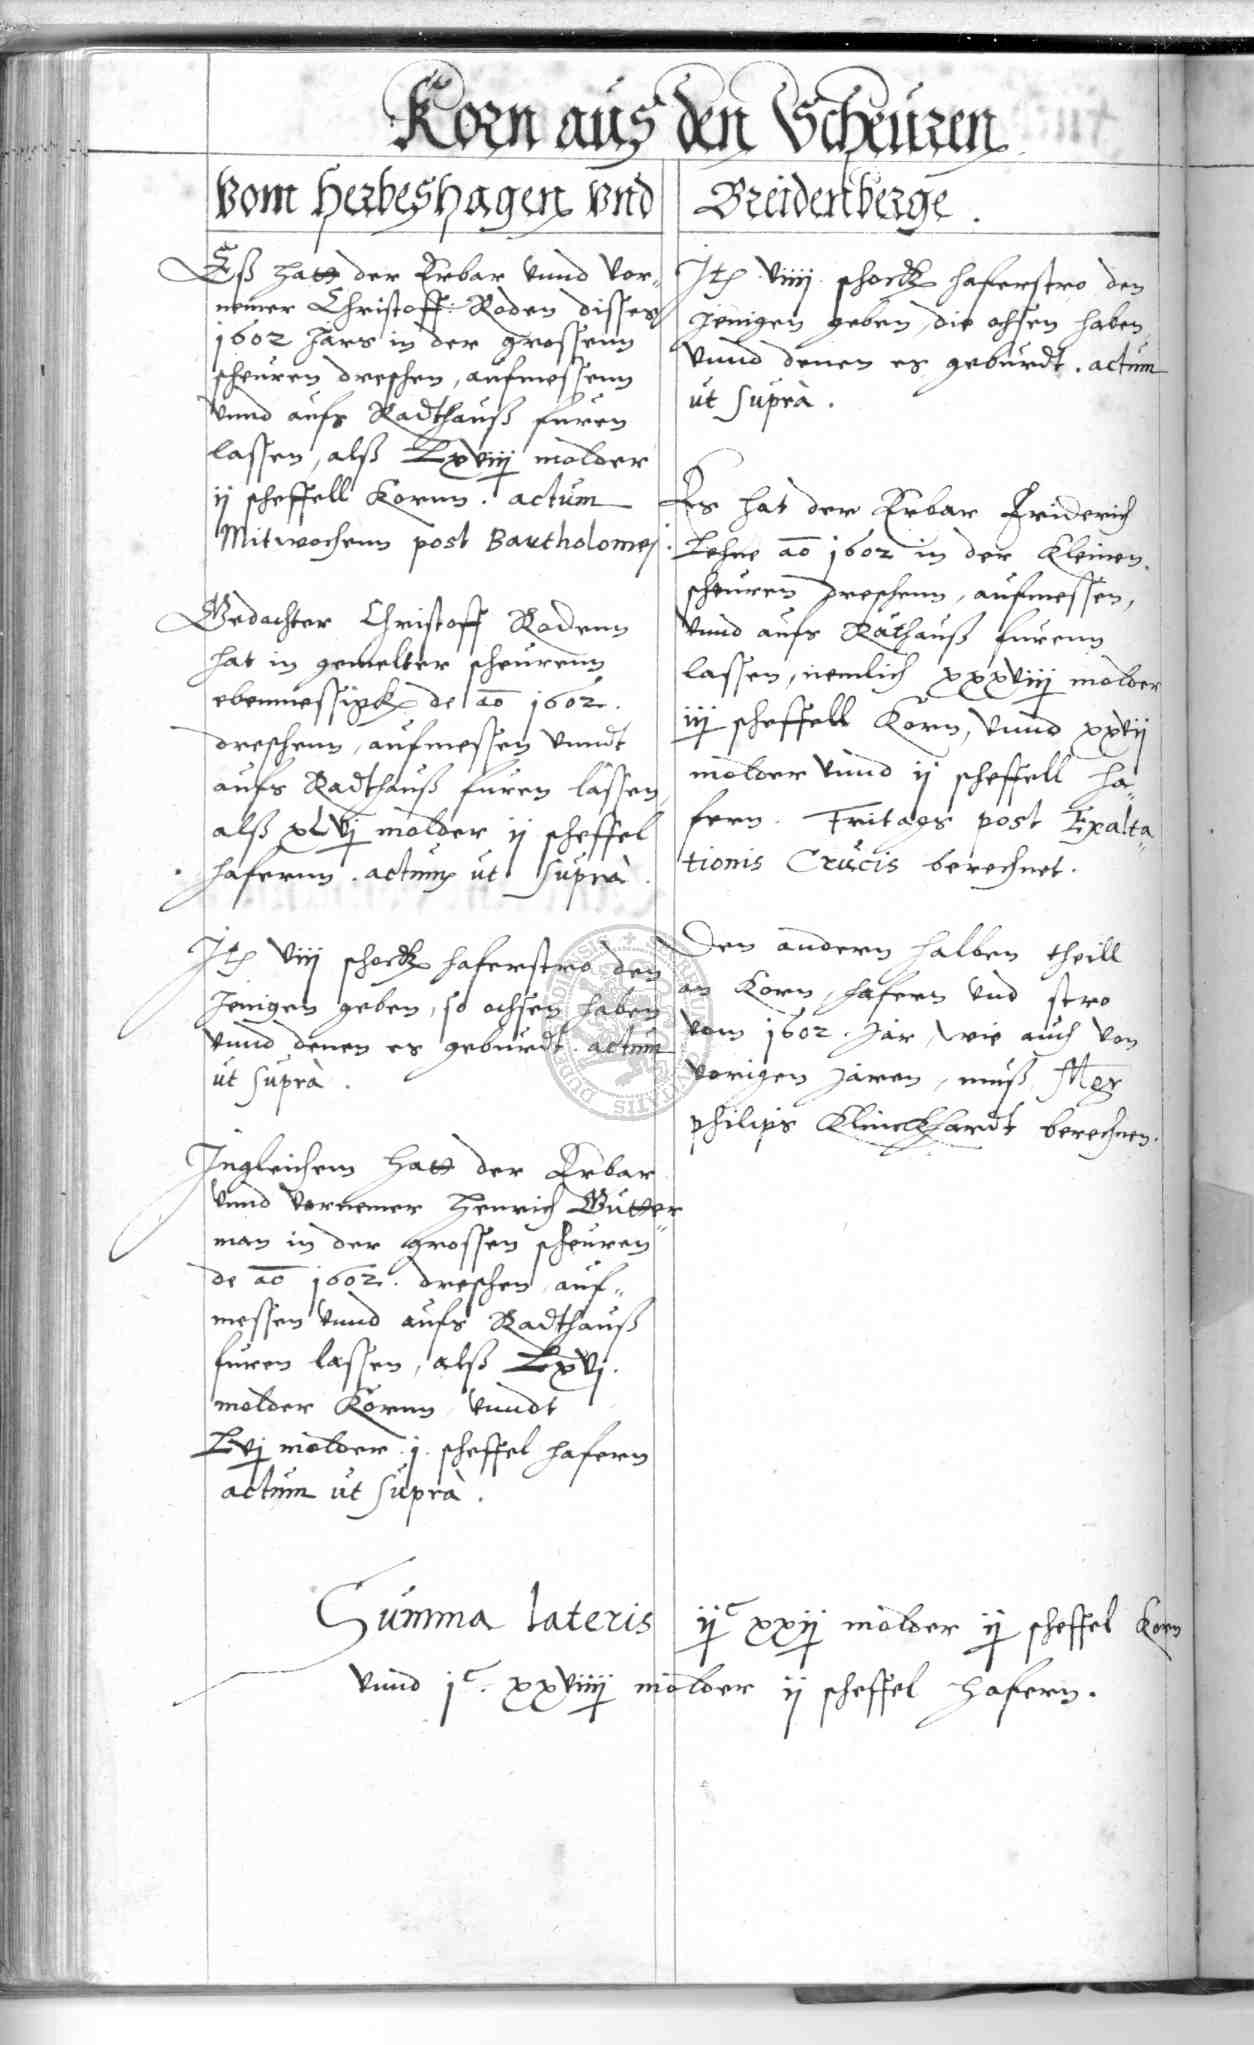 Korn aus den Scheuren
vom Herbeshagen vnd
Breidenberge.
Eß hatt der Erbar vnnd vor„
nemer Christoff Roden disses
1602 Jars in der grossenn
scheuren dreschen, aufmessenn
vnnd aufs Radthauß furen
lassen, alß Lxviiij molder
ij scheffell Kornn. actum
Mitwochenn post Bartholomej.
Gedachter Christoff Rodenn
hat in gemelter scheurenn
ebenmessigk de ao 1602.
dreschenn, aufmessen vnndt
aufs Radthauß furen lassen,
alß xLvj molder ij scheffel
hafernn. actum ut suprà.
Jtem viij schock haferstro den
Jenigen geben, so ochsen haben
vnnd denen es geburdt. actum
ut suprà.
Jngleichem hatt der Erbar
vnnd vornemer Henrich Gutter„
man in der grossen scheuren
de ao 1602. dreschen, auf„
messen vnnd aufs Radthauß
furen lassen, alß Lxvj.
molder Kornn vnndt
Lvj molder j. scheffel hafern
actum ut suprà.
Jtem viiij schock haferstro den
Jenigen geben, die ochsen haben,
vnnd denen es geburdt. actum
ut suprà.
Es hat der Erbar Friderich
Lehne ao 1602 in der Kleinen
scheuren dreschenn, aufmessen,
vnnd aufs Rathauß furenn
lassen, nemlich xxxviiij molder
iij scheffell Korn, vnnd xxvij
molder vnnd ij scheffell ha„
fern. Fritags post Exalta„
tionis Crucis berechnet.
Den andern halben theill
an Korn, hafern vnd stro
vom 1602. Jar, wie auch von
vorigen Jaren, muß
philips Klinckhardt berechnen.
Summa lateris ijc xxij molder ij scheffel Korn
vnnd jc. xxviiij molder ij scheffel hafern.